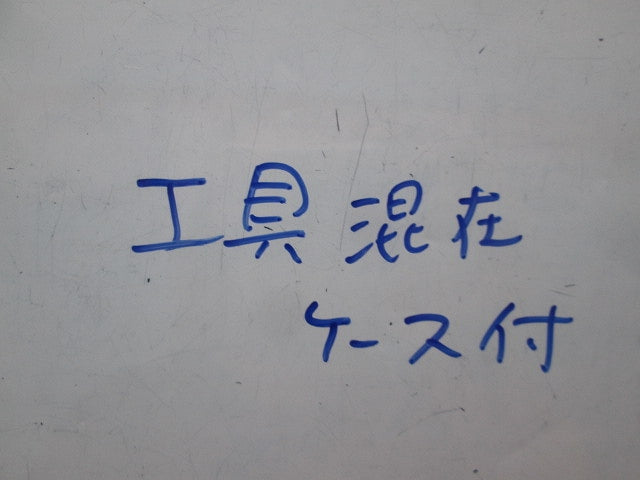 工具混在
ケース付